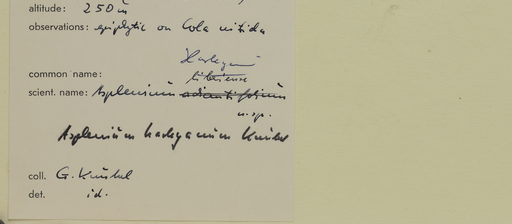 altitude: 250 m
observations: epiphytic on Cola nitida
Harleyanum
common name: liberiense
scient. name: Asplenium adiantifolium
n. sp.
Asplenium harleyanum Kunkel
coll. G. Kunkel
det. id.